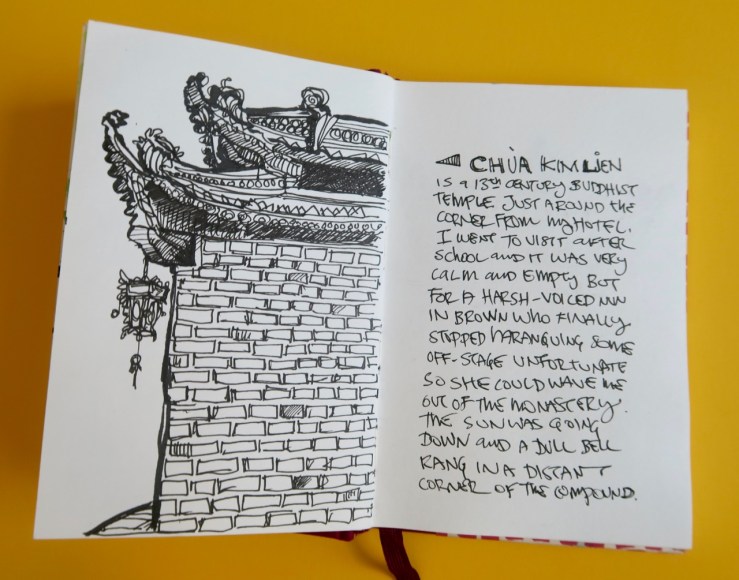 CHÙA KIM LIEN
IS A 13TH CENTURY BUDDHIST
TEMPLE JUST AROUND THE
CORNER FROM MY HOTEL.
I WENT TO VISIT AFTER
SCHOOL AND IT WAS VERY
CALM AND EMPTY BUT
FOR A HARSH-VOICED NUN
IN BROWN WHO FINALLY
STOPPED HARANGUING SOME
OFF-STAGE UNFORTUNATE
SO SHE COULD WAVE ME
OUT OF THE MONASTERY.
THE SUN WAS GOING
DOWN AND A DULL BELL
RANG IN A DISTANT
CORNER OF THE COMPOUND.